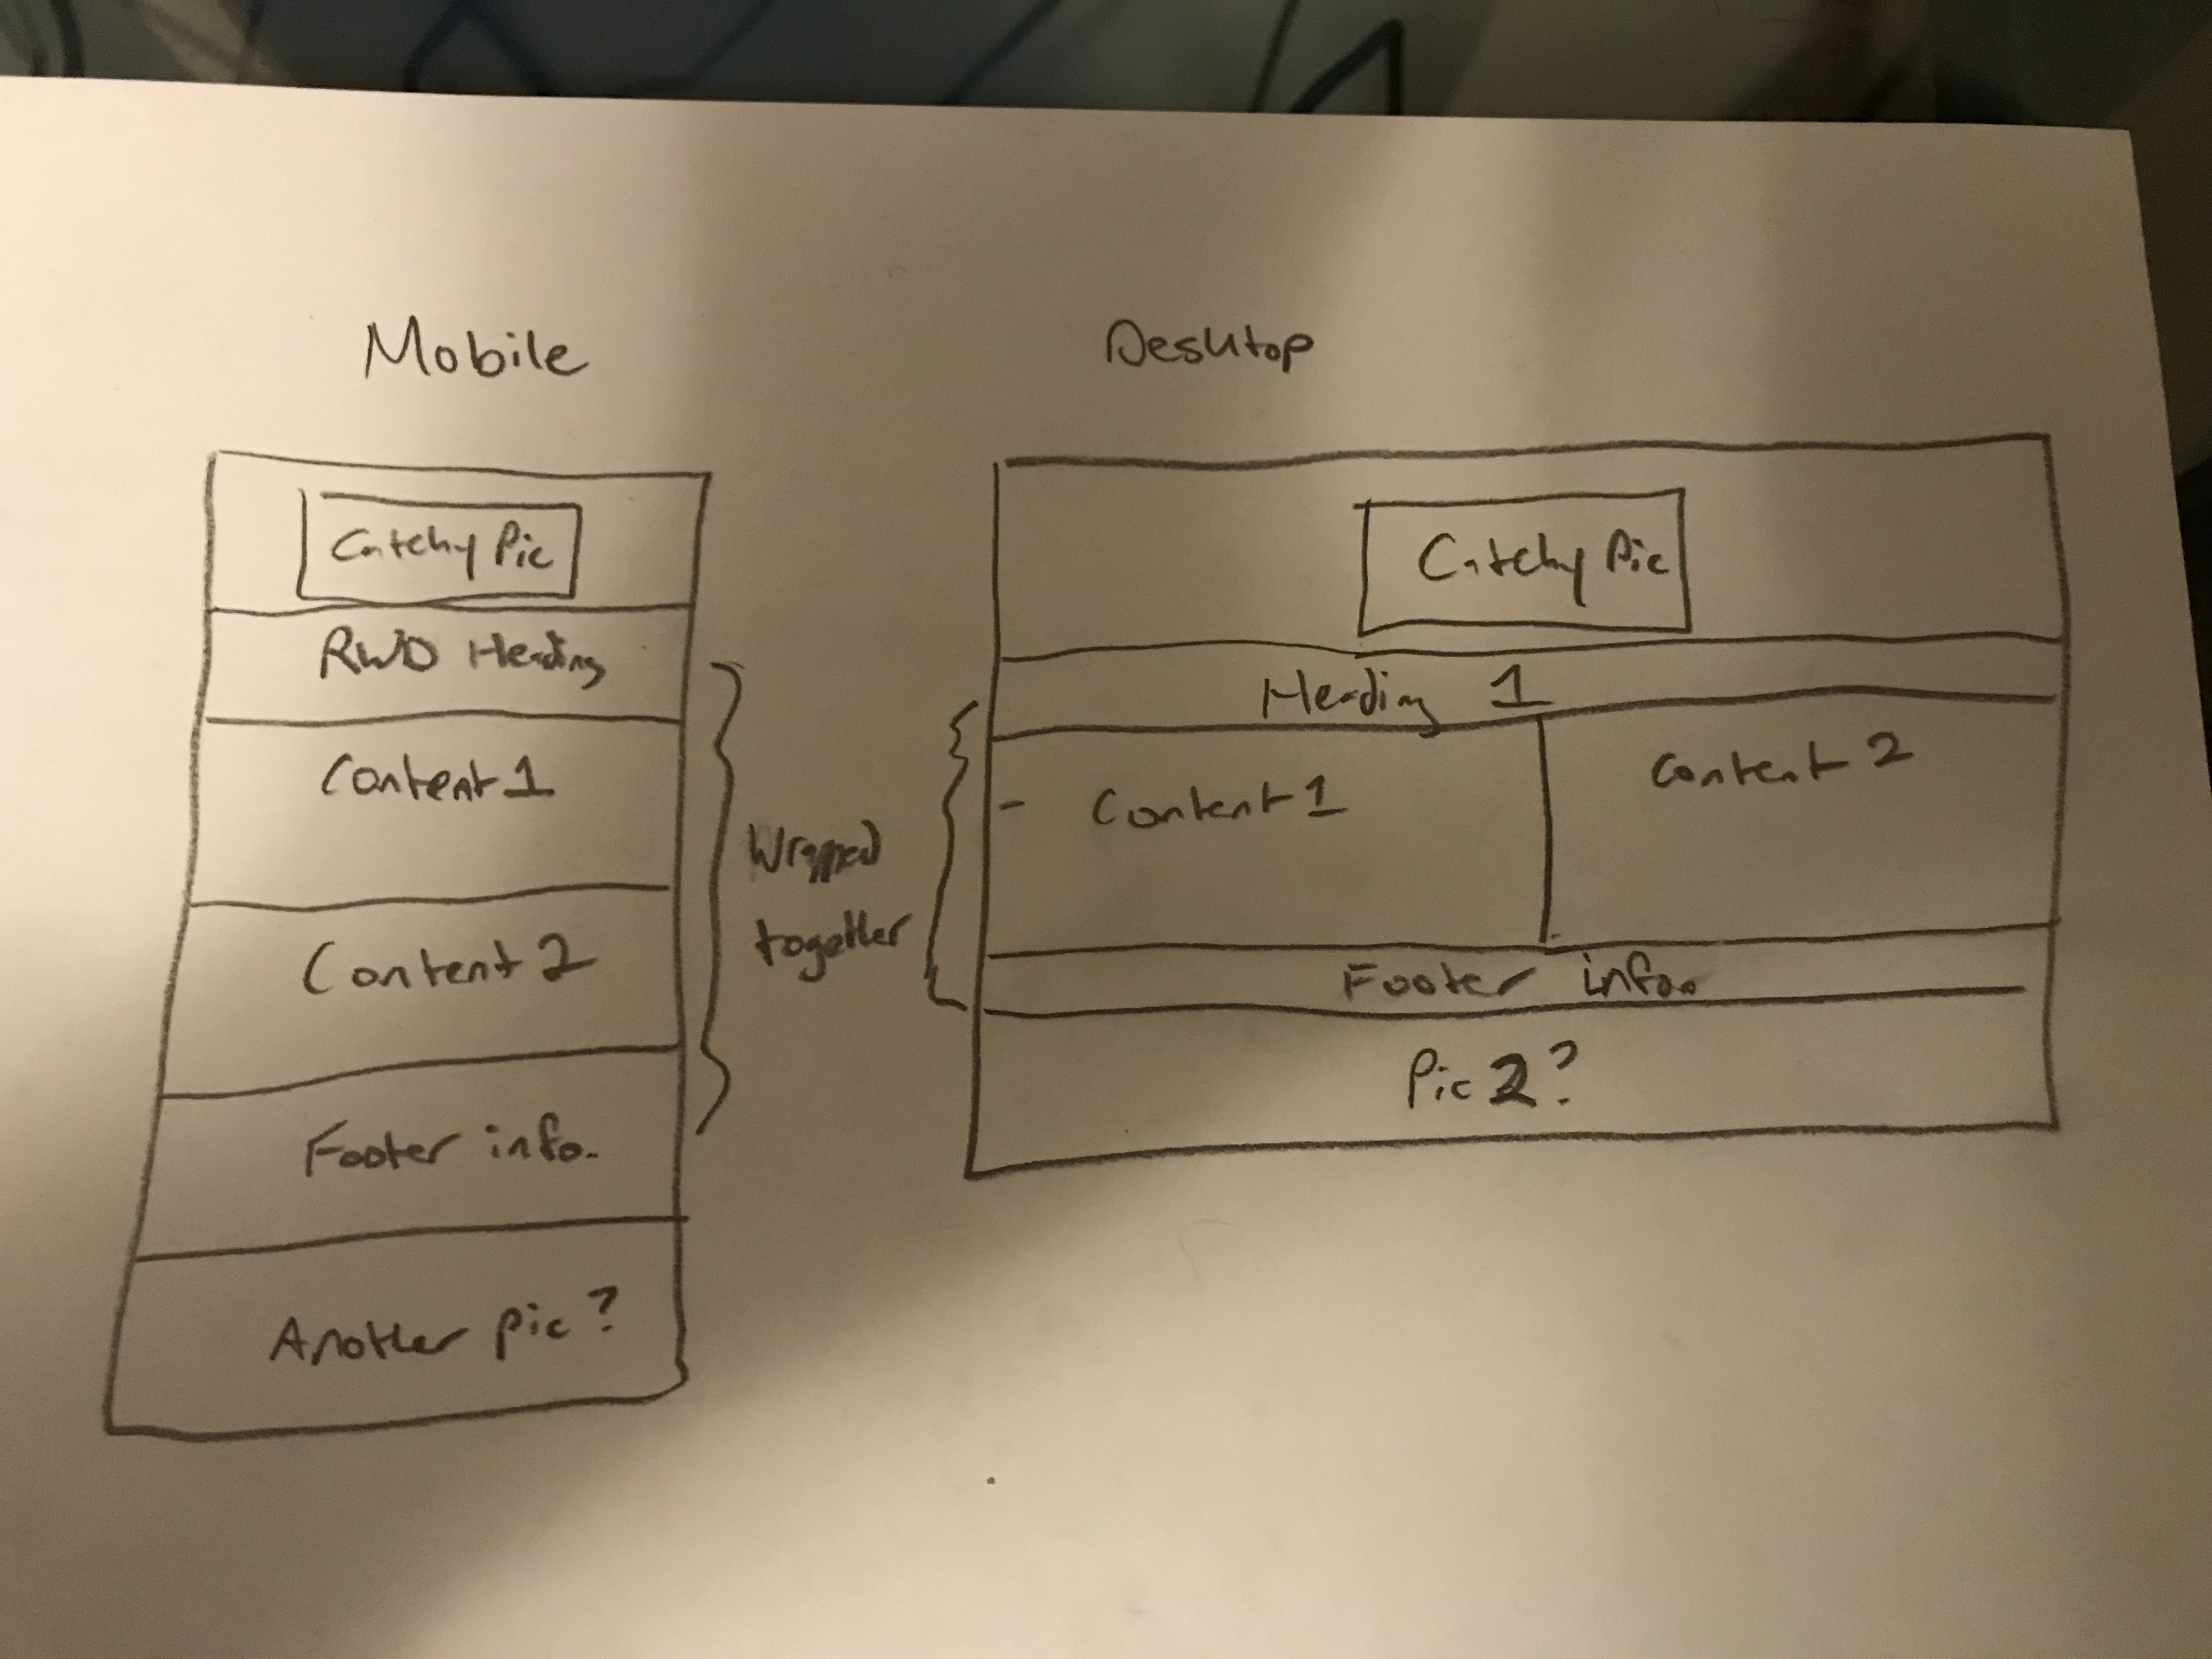 Mobile
Catchy Pic
RWD Heading
Content 1
Content 2
Footer info.
Another pic?
Wrapped
together
Desktop
Catchy Pic
Heading 1
- Content 1
Content 2
Footer info.
Pic 2?